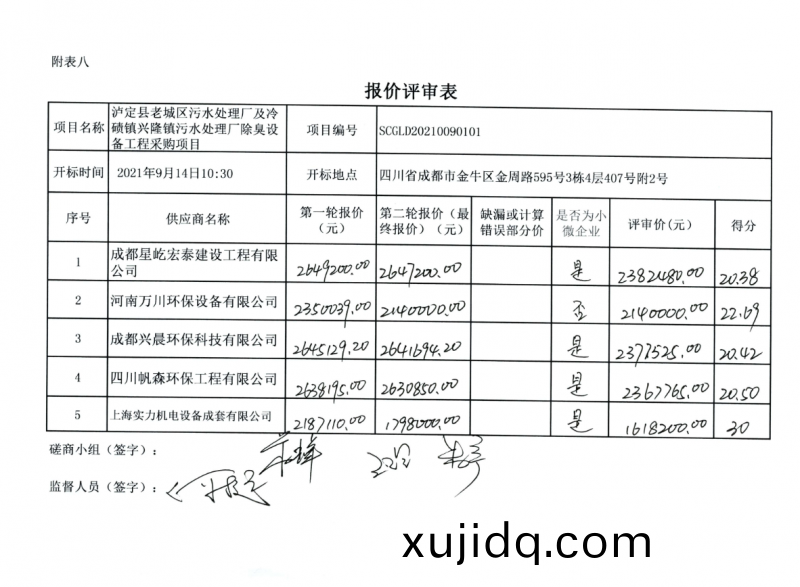 附表八
报价评审表
项目名称 泸定县老城区污水处理厂及冷
碛镇兴隆镇污水处理厂除臭设
备工程采购项目 项目编号 SCGLD20210090101
开标时间 2021年9月14日10:30 开标地点 四川省成都市金牛区金周路595号3栋4层407号附2号
序号 供应商名称 第一轮报价
（元） 第二轮报价（最
终报价）（元） 缺漏或计算
错误部分价 是否为小
微企业 评审价(元) 得分
1 成都星屹宏泰建设工程有限
公司 2649200.00 2647200.00 是 2382480.00 20.38
2 河南万川环保设备有限公司 2350039.00 2140000.00 否 2140000.00 22.69
3 成都兴晨环保科技有限公司 2645129.20 2641694.20 是 2377525.00 20.42
4 四川帆森环保工程有限公司 2638195.00 2630850.00 是 2367765.00 20.50
5 上海实力机电设备成套有限公司 2187110.00 1798000.00 是 1618200.00 30
磋商小组（签字）：
监督人员（签字）：
xujidq.com